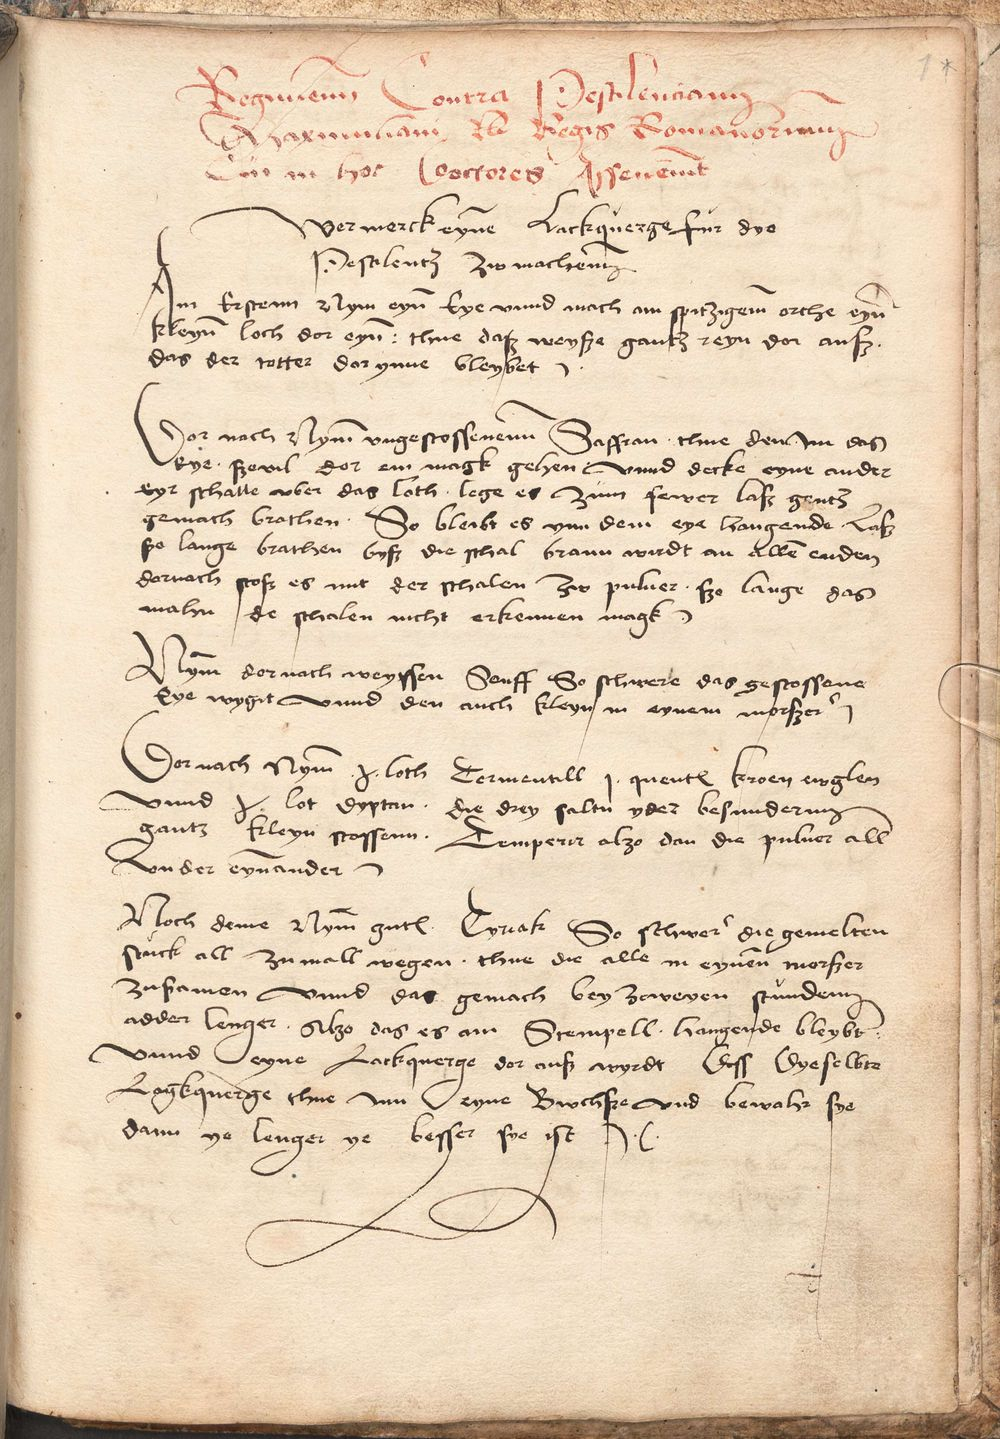 1*
Regimenn Contra Pestilenciam
Maximiliani Regis Romanorum
in hoc Doctores Assenciunt
Vermerck eyne Lackquerge fur dye
Pestilentz zw machenn
Am Ersten Nym eyn Eye vnnd mach am spitzigem orthe eyn
kleyn loch dor eyn : thue dasz weysze gantz reyn dor ausz .
das der totter dor ynne bleybet
Dor nach Nym vngestossenenn Saffran . thue den Jn das
Eye . szevil dor ein magk gehen vnnd decke eyne ander
eyr schalle vber das loch . lege es zum fewer lasz gentz
gemach brathen . So bleibt es ynn dem eye hangende . Lasz
sze lange brathen bysz die schal braun wirdt an allen enden
dornach stosz es mit der schalen zw puluer . sze lange das
mahn de schalen nicht erkennen magk
Nym dornach weyssen Senff So schwere das gestossene
Eye wygit vnnd den auch kleyn in eynem morszer
Dor nach Nym loth Tormentill j . quentl kroen ewglen
vnnd lot dyptan . die drey saltu yder besundernn
gantz kleyn stossenn . Temperir alzo dan die puluer all
vnder eynander
Noch deme Nym gutl Tyriak So schwer die gemelten
stuck all zumall wegen . thue die alle in eynen morszer
zusamen vnnd das gemach bey zweyen stunden
adder lenger . Alzo das es am Stempell . hangende bleybt :
vnnd eyne Lackquerge dor ausz wyrdt Dyeselbte
Lagkquerge thue Jnn eyne Buchsze vnd bewahr sye
dann ye lenger ye besser sye ist